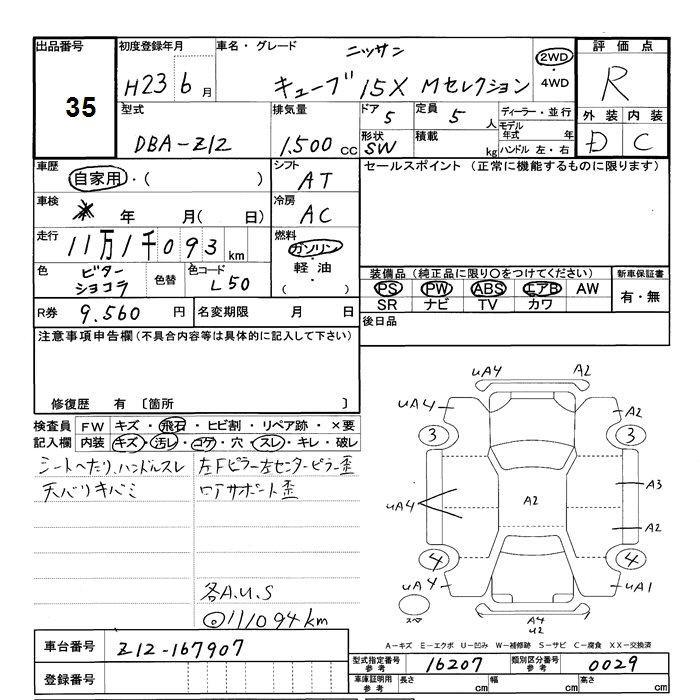 出品番号
35
初度登録年月
H23 6月
車名・グレード
ニッサン
キューブ 15X Mセレクション
2WD
・
4WD
評価点
R
外装 内装
D C
型式
DBA-Z12
排気量
1,500 cc
ドア 5
形状
SW
定員 5 人
積載 kg
ディーラー・並行
モデル
年式 年
ハンドル 左・右
車歴
自家用・( )
車検
年 月( 日)
走行
11万1千093 km
色
ビター
ショコラ
色替
色コード
L50
R券 9.560 円
名変期限 月 日
シフト
AT
冷房
AC
燃料
ガソリン
・
軽油
( )
セールスポイント (正常に機能するものに限ります)
装備品 (純正品に限り〇をつけてください)
PS PW ABS エアB AW
SR ナビ TV カワ
新車保証書
有・無
後日品
注意事項申告欄(不具合内容等は具体的に記入して下さい)
修復歴 有 〔箇所 〕
検査員
記入欄
FW キズ・飛石・ヒビ割・リペア跡・×要
内装 キズ・汚レ・コゲ・穴・スレ・キレ・破レ
シートへたり、ハンドルスレ
天バリキバミ
左Fピラー左センターピラー歪
ロアサポート歪
各A.U.S
◎111094km
uA4 A2
uA4 A2
3 3
uA4 A2 A3
A2
4 4
uA4 uA1
スペア
A4
U2
A-キズ E-エクボ U-凹み W-補修跡 S-サビ C-腐食 XX-交換済
車台番号 Z12-167907
登録番号
型式指定番号
参考
16207
類別区分番号
参考
0029
車庫証明用
参考
長さ cm 幅 cm 高さ cm